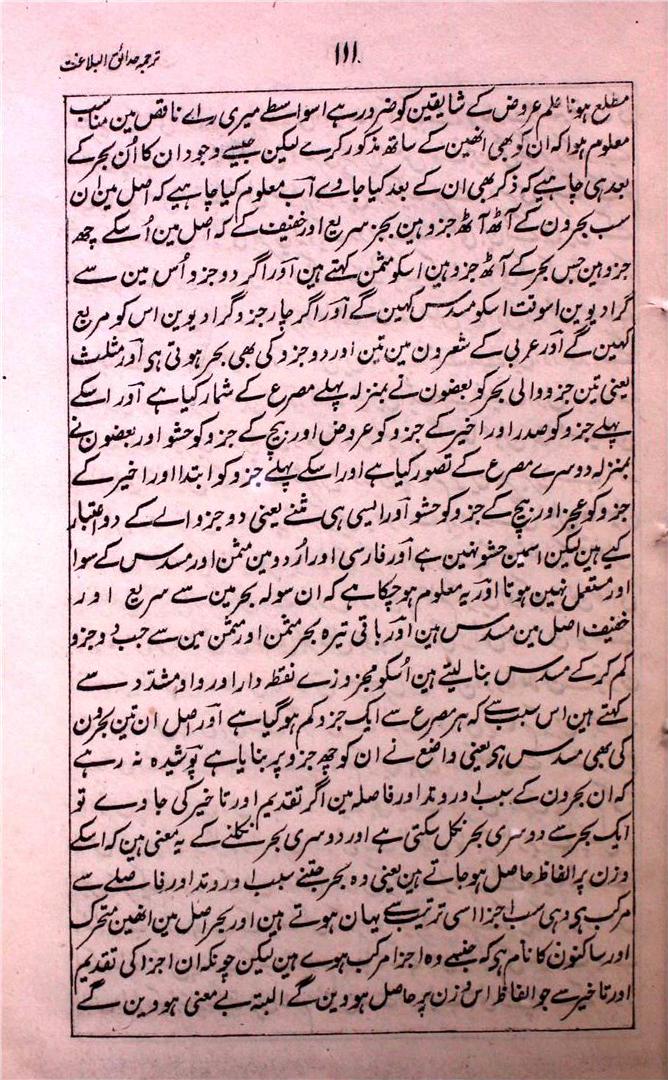 ۱۱۱
ترجمہ حدائق البلاغت
مطلع ہونا علم عروض کے شایقین کو ضرور ہے اسواسطے میری راے ناقص مین مناسب
معلوم ہوا کہ ان کو بھی انھین کے ساتھ مذکور کرے لیکن جیسے وجود ان کا اُن بحر کے
بعد ہی چاہیے کہ ذکر بھی ان کے بعد کیا جاوے اب معلوم کیا چاہیے کہ اصل مین ان
سب بحرون کے آٹھ آٹھ جزو ہین بجز سریع اور خفیف کے کہ اصل مین اُسکے چھ
جزو ہین جس بحر کے آٹھ جزو ہین اسکو مثمن کہتے ہین اور اگر دو جزو اُس مین سے
گرادیوین اسوقت اسکو مسدس کہین گے اور اگر چار جزو گرادیوین اس کو مربع
کہین گے اور عربی کے شعرون مین تین اور دو جزو کی بھی بحر ہوتی ہی اور مثلث
یعنی تین جزو والی بحر کو بعضون نے بمنزلہ پہلے مصرع کے شمار کیا ہے اور اسکے
پہلے جزو کو صدر اور اخیر کے جزو کو عروض اور بیچ کے جزو کو حشو اور بعضون نے
بمنزلہ دوسرے مصرع کے تصور کیا ہے اور اسکے پہلے جزو کو ابتدا اور اخیر کے
جزو کو عجز اور بیچ کے جزو کو حشو اور ایسی ہی مثنے یعنی دو جزو والے کے دو اعتبار
کیے ہین لیکن اسمین حشو نہین ہے اور فارسی اور اُردو مین مثمن اور مسدس کے سوا
اور مستعمل نہین ہوتا اور یہ معلوم ہو چکا ہے کہ ان سولہ بحر مین سے سریع اور
خفیف اصل مین مسدس ہین اور باقی تیرہ بحر مثمن اور مثمن مین سے جب دو جزو
کم کرکے مسدس بنا لیتے ہین اُسکو مجزو زے نقطہ دار اور واو مشدّد سے
کہتے ہین اس سبب سے کہ ہر مصرع سے ایک جزو کم ہو گیا ہے اور اصل ان تین بحرون
کی بھی مسدس ہی یعنی واضع نے ان کو چھ جزو پر بنایا ہے پوشیدہ نہ رہے
کہ ان بحرون کے سبب اور وتد اور فاصلہ مین اگر تقدیم اور تاخیر کی جاوے تو
ایک بحر سے دوسری بحر نکل سکتی ہے اور دوسری بحر نکلنے کے یہ معنی ہین کہ اسکے
وزن پر الفاظ حاصل ہو جاتے ہین یعنی وہ بحر جتنے سبب اور وتد اور فاصلے سے
مرکب ہی وہی سب اجزا اسی ترتیب سے یہان ہوتے ہین اور بحر اصل مین انھین متحرک
اور ساکنون کا نام ہی کہ جنسے وہ اجزا مرکب ہوے ہین لیکن چونکہ ان اجزا کی تقدیم
اور تاخیر سے جو الفاظ اس وزن پر حاصل ہووین گے البتہ بے معنی ہووین گے